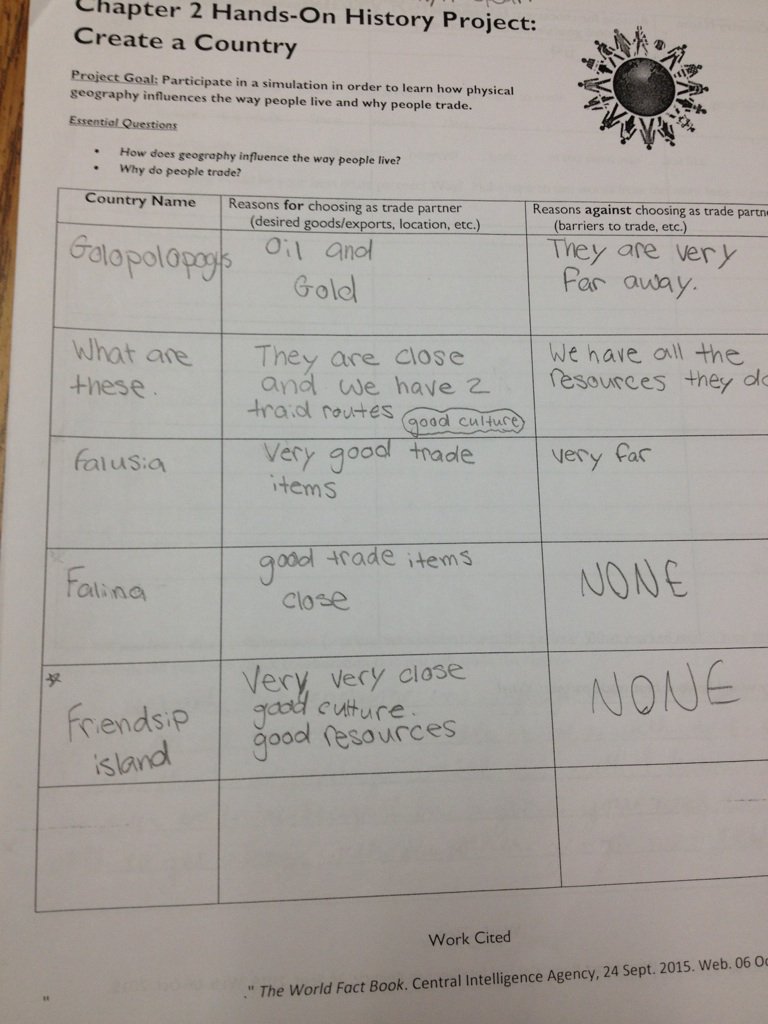 Chapter 2 Hands-On History Project:
Create a Country
Project Goal: Participate in a simulation in order to learn how physical
geography influences the way people live and why people trade.
Essential Questions
• How does geography influence the way people live?
• Why do people trade?
Country Name
Reasons for choosing as trade partner
(desired goods/exports, location, etc.)
Reasons against choosing as trade
(barriers to trade, etc.)
Golopolopogus
Oil and
Gold
They are very
far away.
What are
these.
They are close
and we have 2
traid routes good culture
We have all the
resources they
falusia
Very good trade
items
very far
Falina
good trade items
close
NONE
Friendsip
island
Very very close
good culture.
good resources
NONE
Work Cited
" ." The World Fact Book. Central Intelligence Agency, 24 Sept. 2015. Web. 06